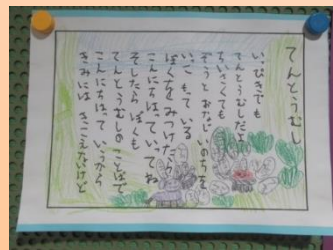 てんとうむし
いっぴきでも
てんとうむしだよ
ちいさくても
ぞうと おなじ いのちを
いっこ もっている
ぼくを みつけたら
こんにちはって いってね
そしたら ぼくも
てんとうむしの ことばで
こんにちはって いうから
きみには きこえないけど